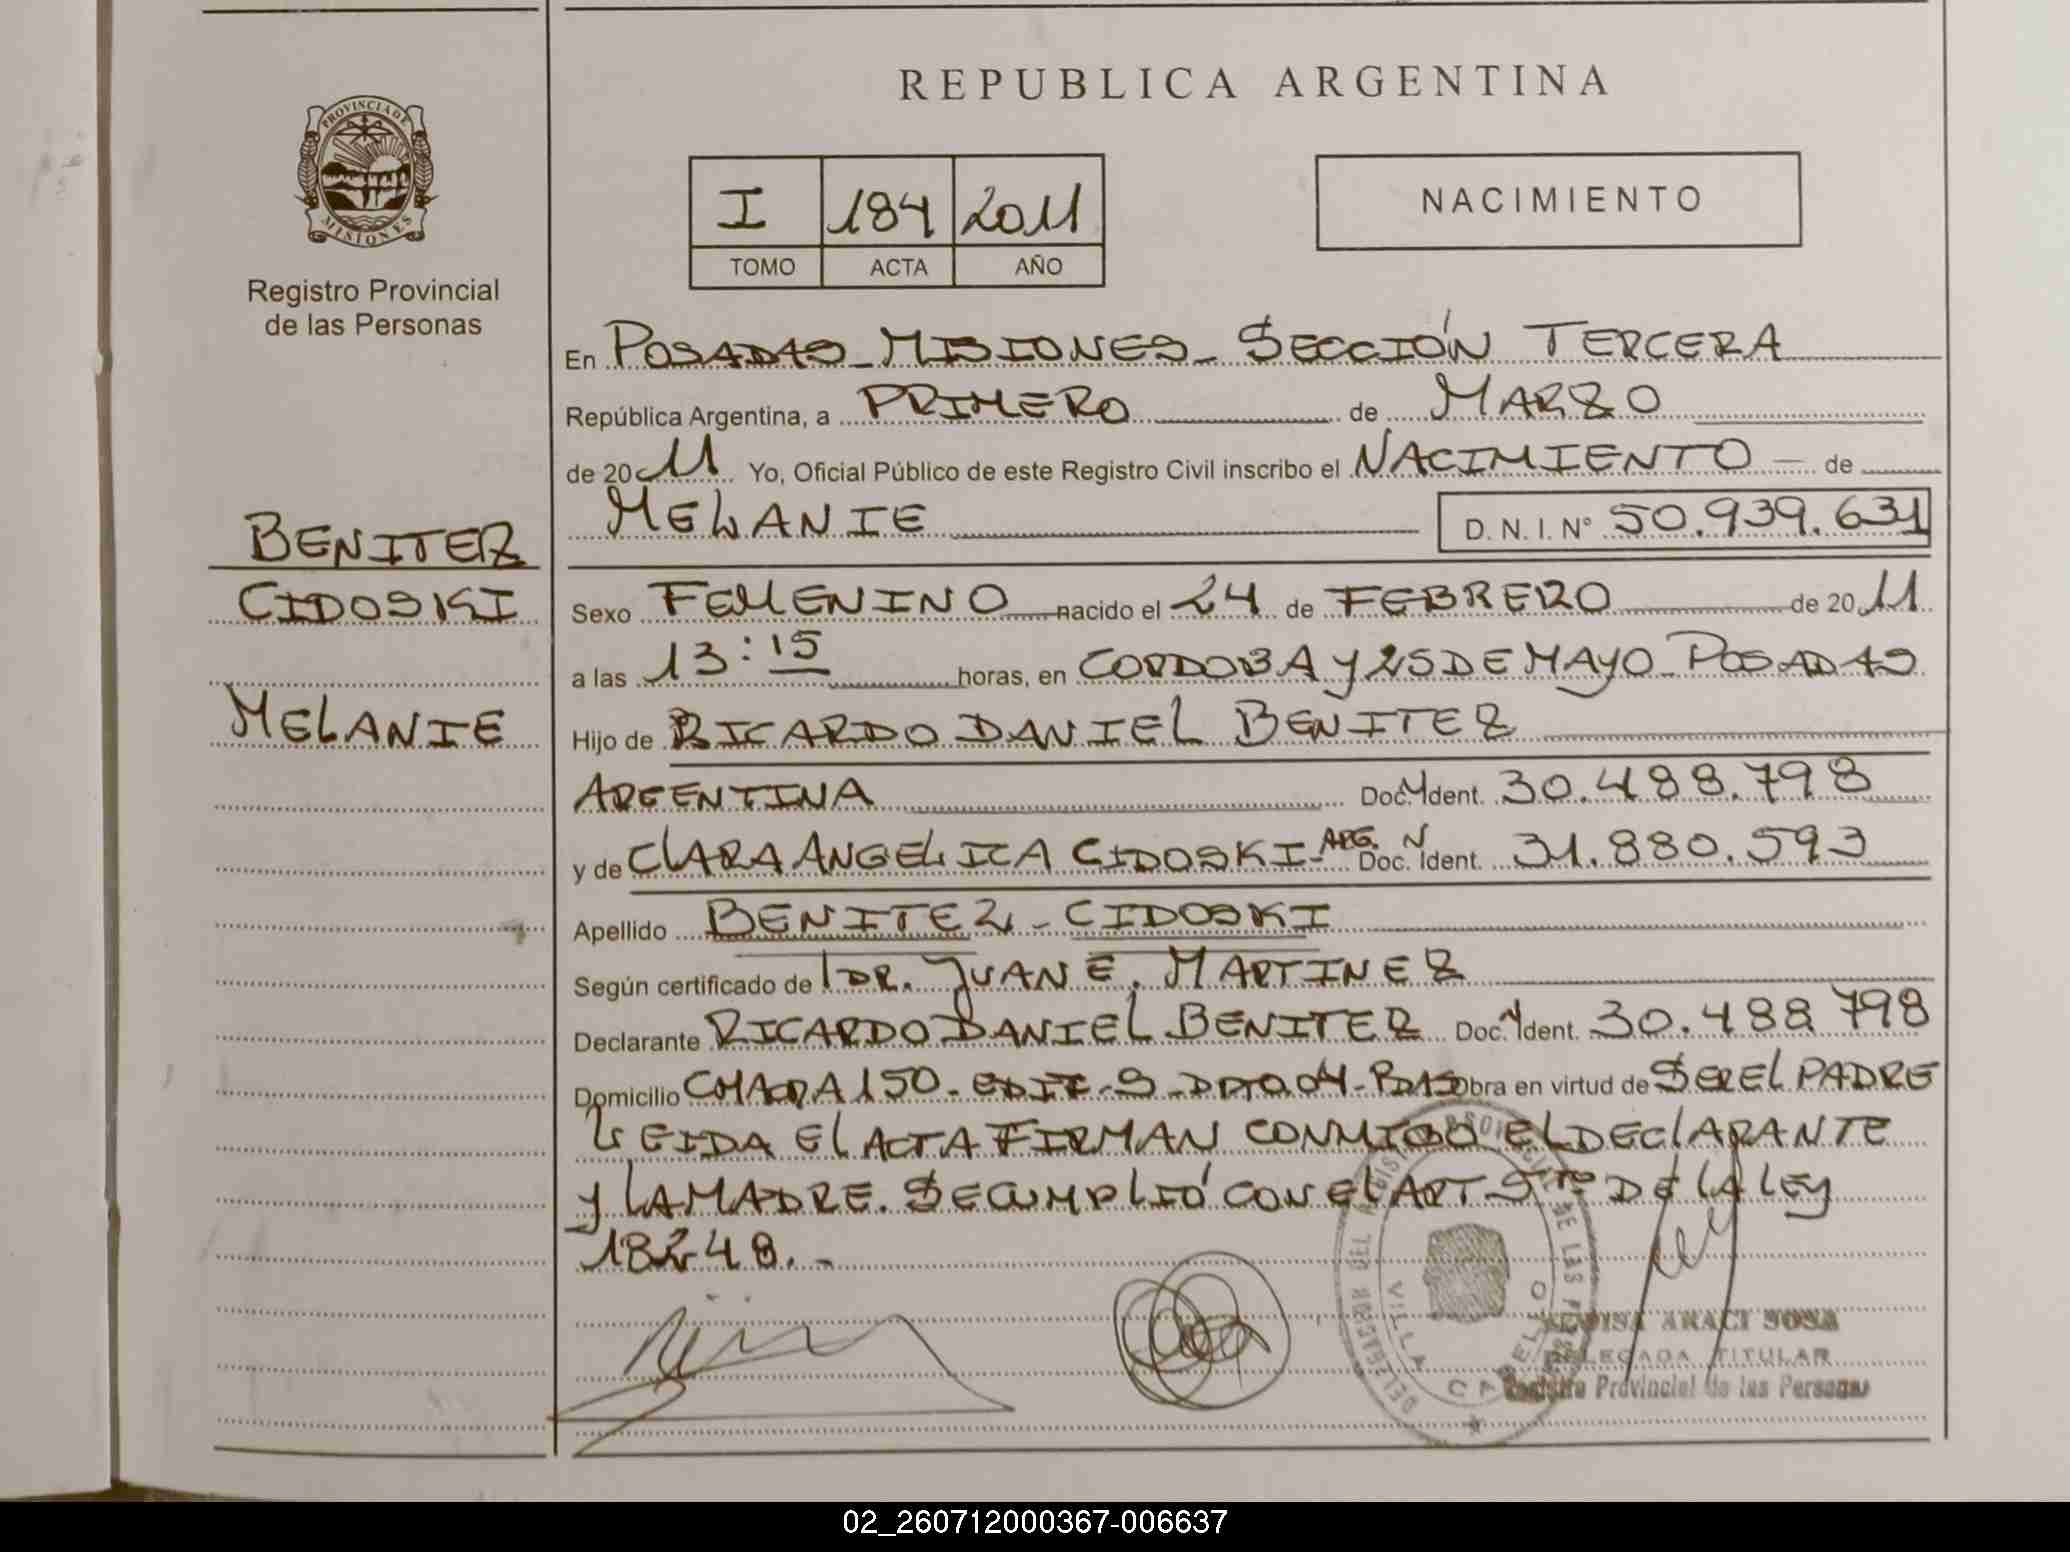 REPUBLICA ARGENTINA
PROVINCIA DE
MISIONES
Registro Provincial
de las Personas
I 184 2011
TOMO ACTA AÑO
NACIMIENTO
En POSADAS - MISIONES - SECCIÓN TERCERA
República Argentina, a PRIMERO de MARZO
de 2011 Yo, Oficial Público de este Registro Civil inscribo el NACIMIENTO — de
MELANIE D. N. I. N° 50.939.631
BENITEZ
CIDOSKI
MELANIE
Sexo FEMENINO nacido el 24 de FEBRERO de 2011
a las 13:15 horas, en CORDOBA y 25 DE MAYO - POSADAS
Hijo de RICARDO DANIEL BENITEZ
ARGENTINA Doc. Ident. 30.488.798
y de CLARA ANGELICA CIDOSKI - ARG. N Doc. Ident. 31.880.593
Apellido BENITEZ - CIDOSKI
Según certificado de DR. JUAN E. MARTINEZ
Declarante RICARDO DANIEL BENITEZ Doc. Ident. 30.488.798
Domicilio CHACRA 150 - EDIF - 9 - DPTO 04 - PDAS Obra en virtud de SER EL PADRE
LEIDA EL ACTA FIRMAN CONMIGO EL DECLARANTE
y LA MADRE. SE CUMPLIÓ CON EL ART 5TO DE LA LEY
18248.-
VILLA CABELLO
ARACI SOSA
DELEGADA TITULAR
Registro Provincial de las Personas
02_260712000367-006637